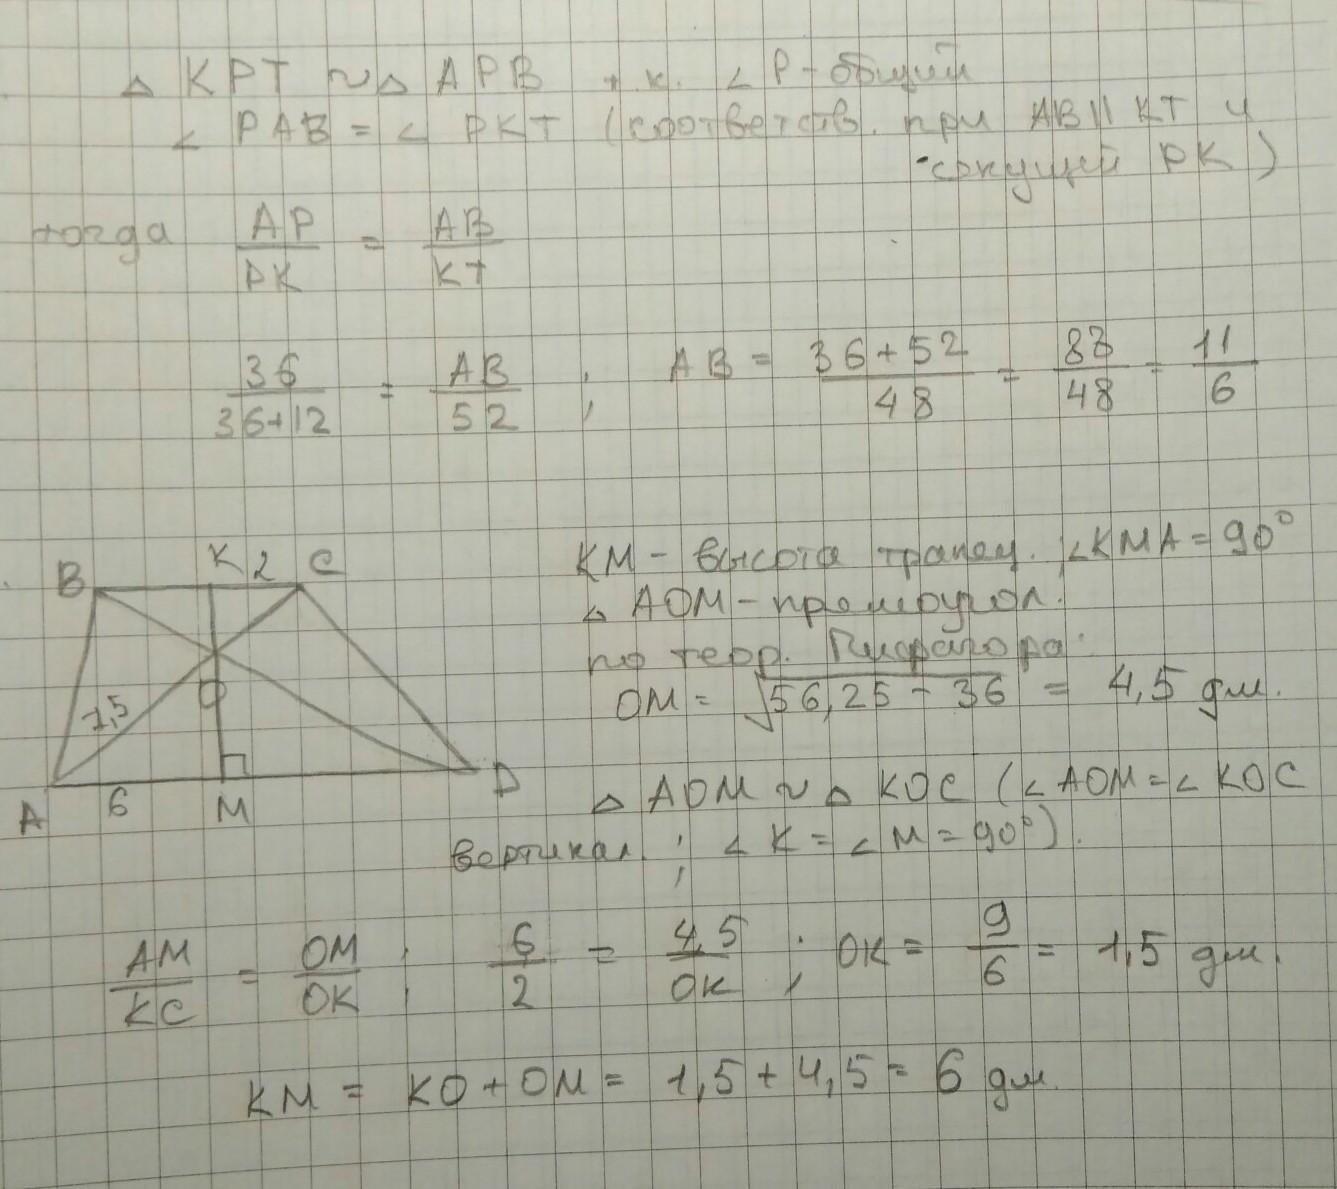 △ KPT ~ △ APB т.к. ∠P - общий
∠ PAB = ∠ PKT (соответств. при AB || KT и
секущей PK)
тогда AP/PK = AB/KT
36/(36+12) = AB/52 ; AB = (36+52)/48 = 88/48 = 11/6
B K 2 C
7,5 O
A 6 M D
KM - высота трапец. ∠KMA = 90°
△ AOM - прямоугол.
по теор. Пифагора:
OM = √(56,25 - 36) = 4,5 дм.
△ AOM ~ △ KOC (∠AOM = ∠KOC
вертикал. ; ∠K = ∠M = 90°).
AM/KC = OM/OK ; 6/2 = 4,5/OK ; OK = 9/6 = 1,5 дм.
KM = KO + OM = 1,5 + 4,5 = 6 дм.